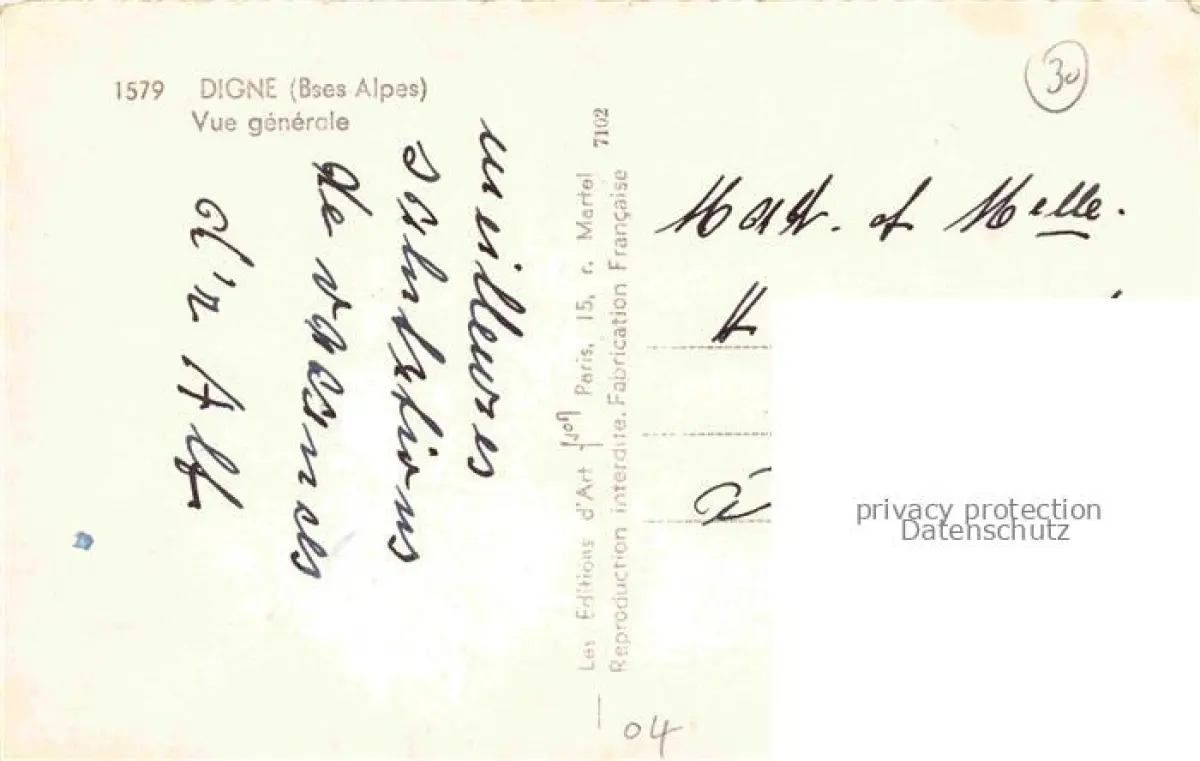 1579 DIGNE (Bses Alpes)
Vue générale
meilleures
salutations
de vacances
Les Editions d'Art Yvon Paris, 15, r. Martel
Reproduction interdite. Fabrication Française
7102
30
et Melle.
à
privacy protection
Datenschutz
04